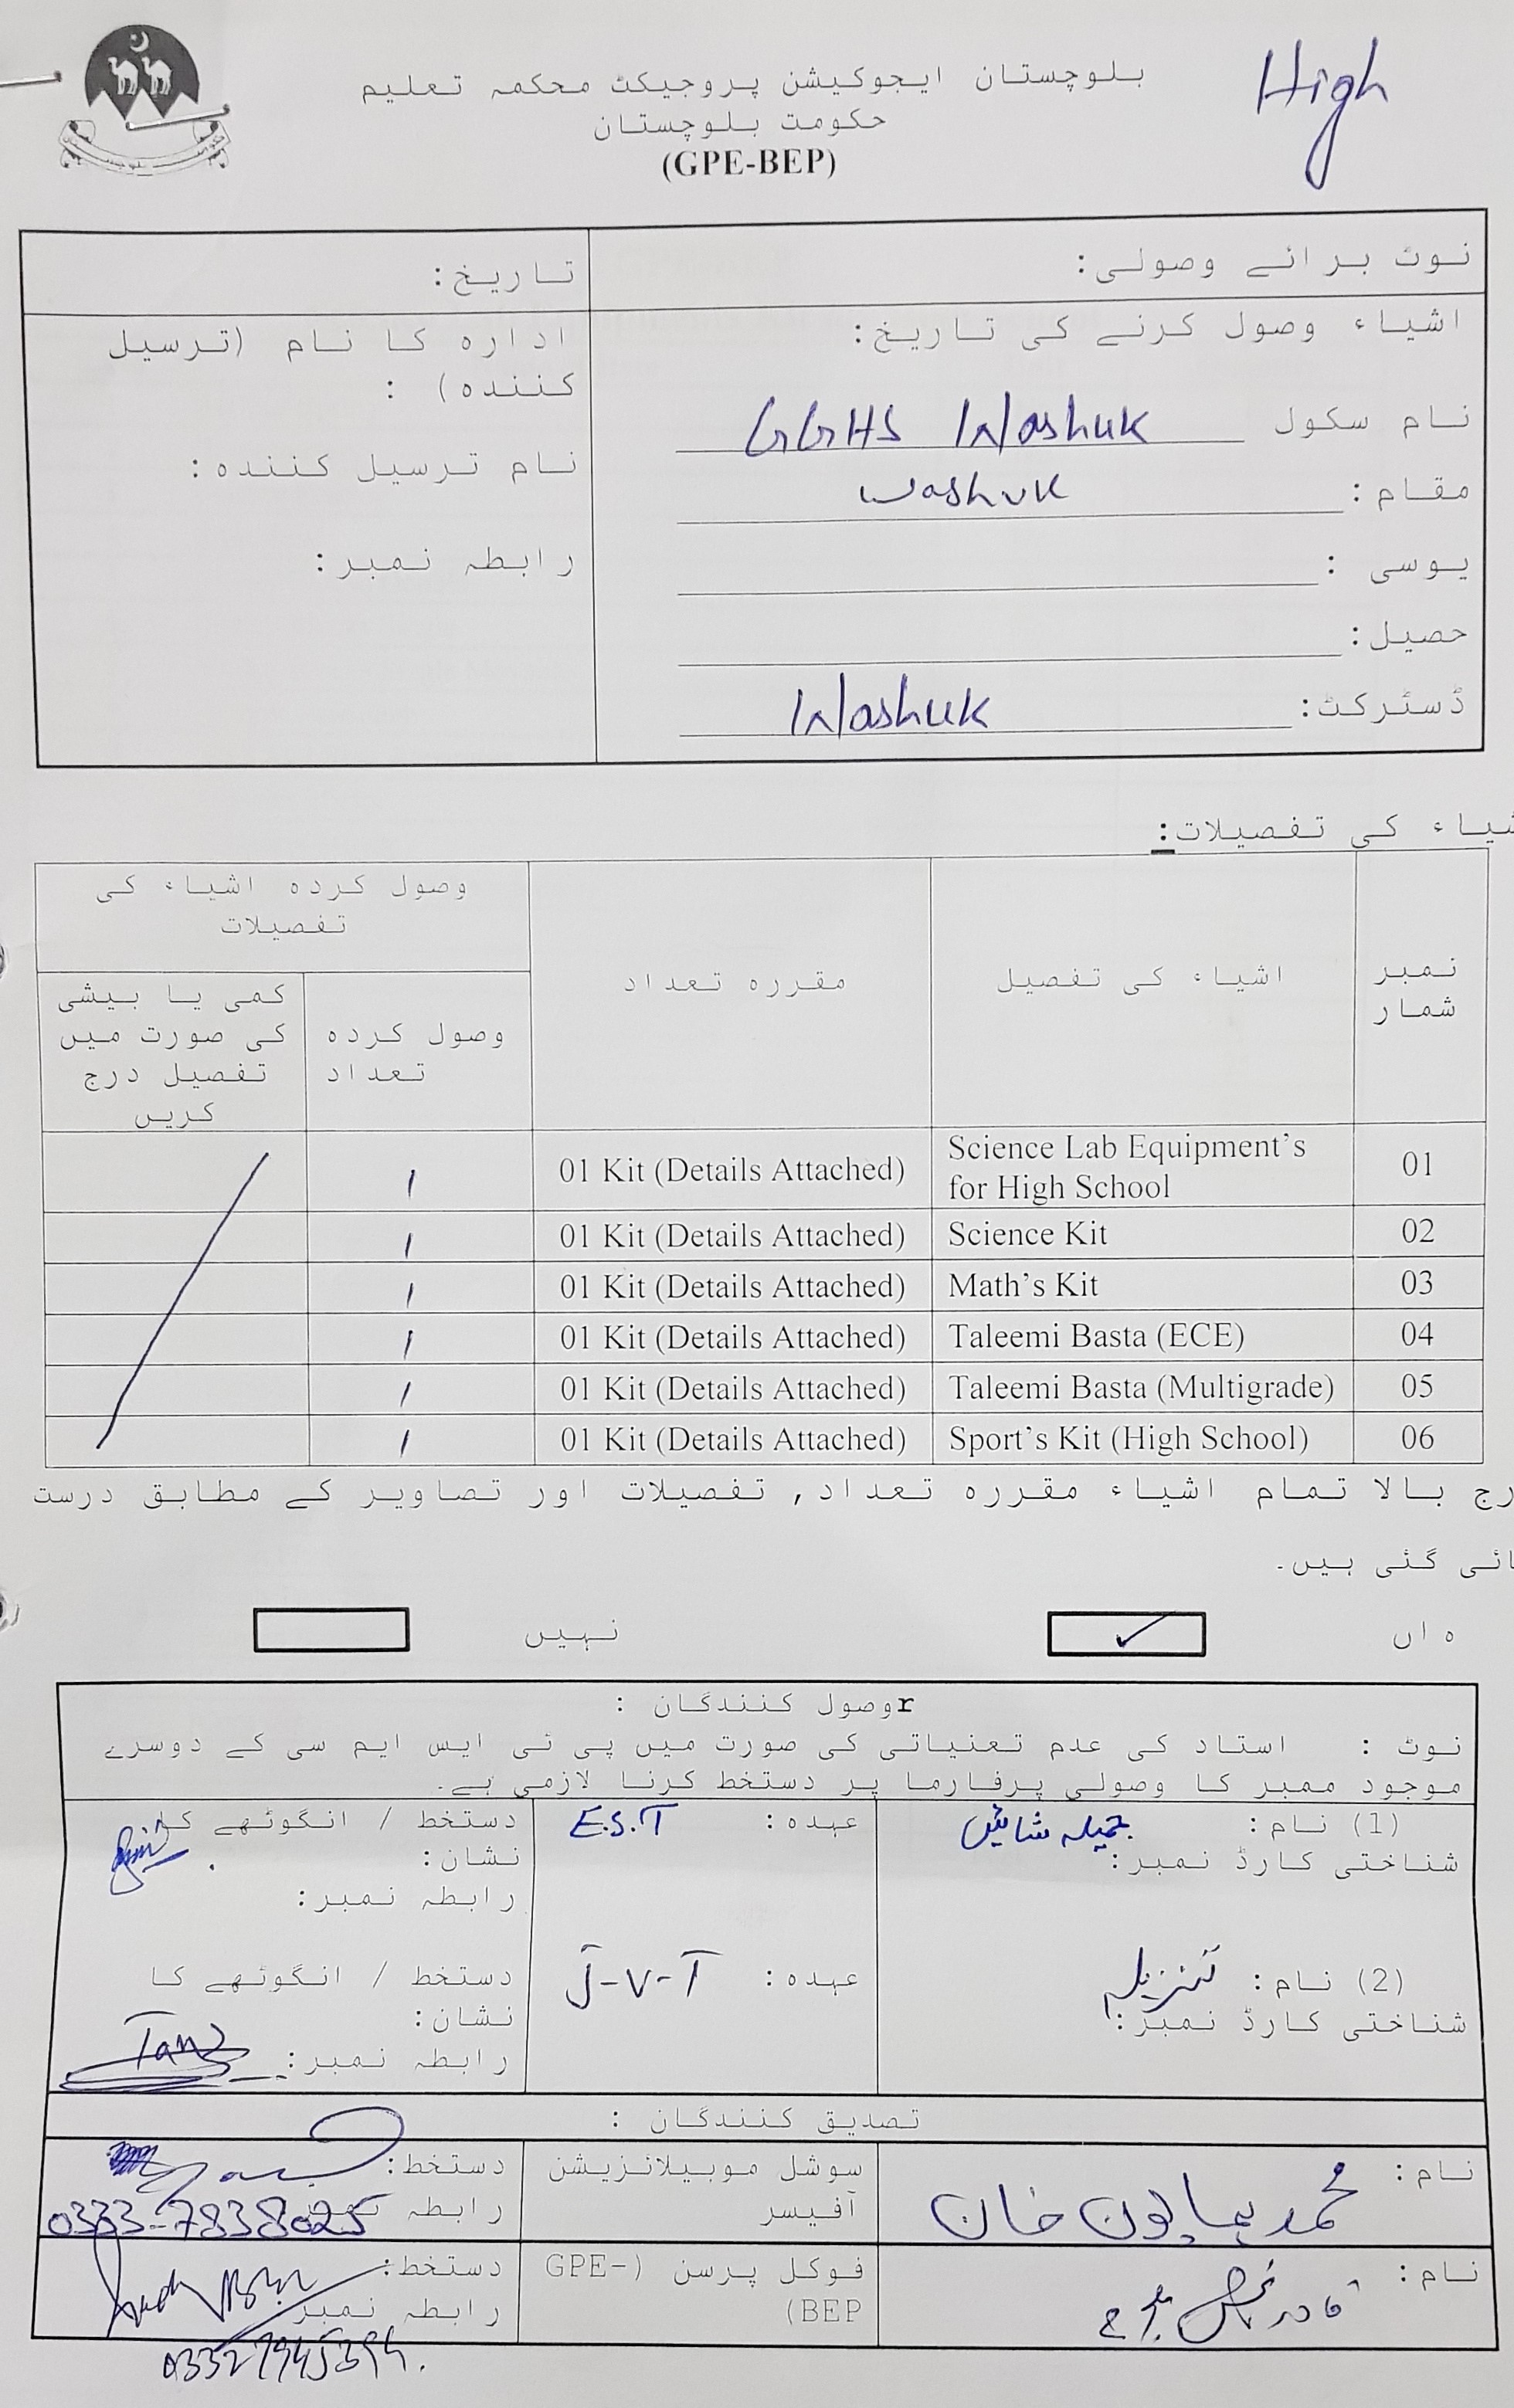 بلوچستان ایجوکیشن پروجیکٹ محکمہ تعلیم
High
حکومت بلوچستان
(GPE-BEP)
نوٹ برائے وصولی:
تاریخ:
اشیاء وصول کرنے کی تاریخ:
نام سکول GGHS Washuk
مقام: Washuk
یوسی :
حصیل:
ڈسٹرکٹ: Washuk
ادارہ کا نام (ترسیل
کنندہ) :
نام ترسیل کنندہ:
رابطہ نمبر:
شیاء کی تفصیلات:
نمبر شمار
اشیاء کی تفصیل
مقررہ تعداد
وصول کردہ اشیاء کی
تفصیلات
وصول کردہ
تعداد
کمی یا بیشی
کی صورت میں
تفصیل درج
کریں
01 Science Lab Equipment’s for High School 01 Kit (Details Attached) 1
02 Science Kit 01 Kit (Details Attached) 1
03 Math’s Kit 01 Kit (Details Attached) 1
04 Taleemi Basta (ECE) 01 Kit (Details Attached) 1
05 Taleemi Basta (Multigrade) 01 Kit (Details Attached) 1
06 Sport’s Kit (High School) 01 Kit (Details Attached) 1
رج بالا تمام اشیاء مقررہ تعداد, تفصیلات اور تصاویر کے مطابق درست
ائی گئی ہیں۔
ہ اں ✓
نہیں
rوصول کنندگان :
نوٹ : استاد کی عدم تعنیاتی کی صورت میں پی ٹی ایس ایم سی کے دوسرے
موجود ممبر کا وصولی پرفارما پر دستخط کرنا لازمی ہے۔
(1) نام: جمیلہ
شناختی کارڈ نمبر:
عہدہ: E.S.T
دستخط / انگوٹھے کا
نشان:
رابطہ نمبر:
(2) نام: تنزیلہ
شناختی کارڈ نمبر:
عہدہ: J-V-T
دستخط / انگوٹھے کا
نشان:
رابطہ نمبر:
تصدیق کنندگان :
نام: محمد ہمایون خان
سوشل موبیلائزیشن
آفیسر
دستخط:
رابطہ نمبر
0333-7838025
نام: قادر بخش
فوکل پرسن (GPE-
BEP)
دستخط:
رابطہ نمبر